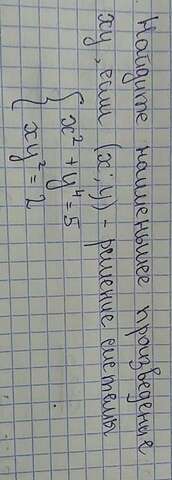 Найдите наименьшее произведение
xy, если (x; y) - решение системы
{ x² + y⁴ = 5
{ xy² = 2